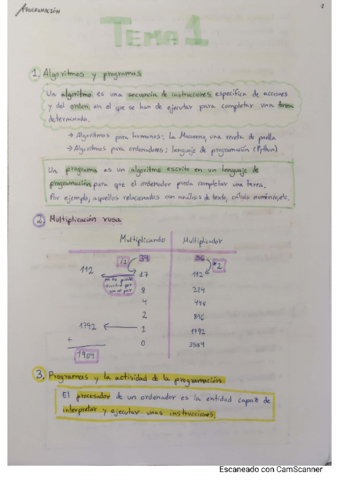 PROGRAMACIÓN
1
TEMA 1
1. Algoritmos y programas
Un algoritmo es una secuencia de instrucciones específica de acciones
y del orden en el que se han de ejecutar para completar una tarea
determinada.
→ Algoritmos para humanos: la Macarena, una receta de paella
→ Algoritmos para ordenadores: lenguaje de programación (Python)
Un programa es un algoritmo escrito en un lenguaje de
programación para que el ordenador pueda completar una tarea.
Por ejemplo, aquellos relacionados con análisis de texto, cálculo
2. Multiplicación rusa
Multiplicando Multiplicador
112
17
8 224
4 448
2 896
1792 ← 1 1792
+ 0
1904
3. Programas y la actividad de la programación
El procesador de un ordenador es la entidad capaz de
interpretar y ejecutar unas instrucciones.
Escaneado con CamScanner